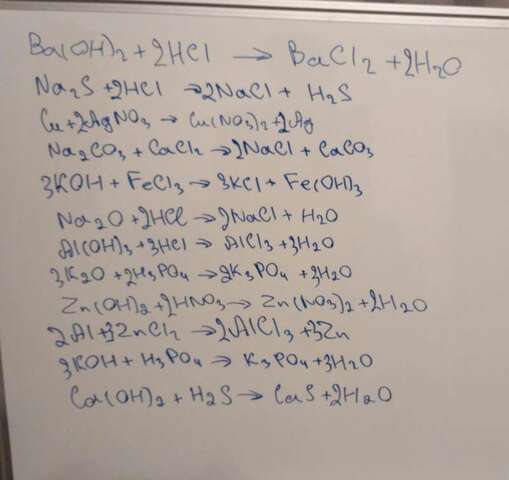 Ba(OH)₂ + 2HCl → BaCl₂ + 2H₂O
Na₂S + 2HCl → 2NaCl + H₂S
Cu + 2AgNO₃ → Cu(NO₃)₂ + 2Ag
Na₂CO₃ + CaCl₂ → 2NaCl + CaCO₃
3KOH + FeCl₃ → 3KCl + Fe(OH)₃
Na₂O + 2HCl → 2NaCl + H₂O
Al(OH)₃ + 3HCl → AlCl₃ + 3H₂O
3K₂O + 2H₃PO₄ → 2K₃PO₄ + 3H₂O
Zn(OH)₂ + 2HNO₃ → Zn(NO₃)₂ + 2H₂O
2Al + 3ZnCl₂ → 2AlCl₃ + 3Zn
3KOH + H₃PO₄ → K₃PO₄ + 3H₂O
Ca(OH)₂ + H₂S → CaS + 2H₂O